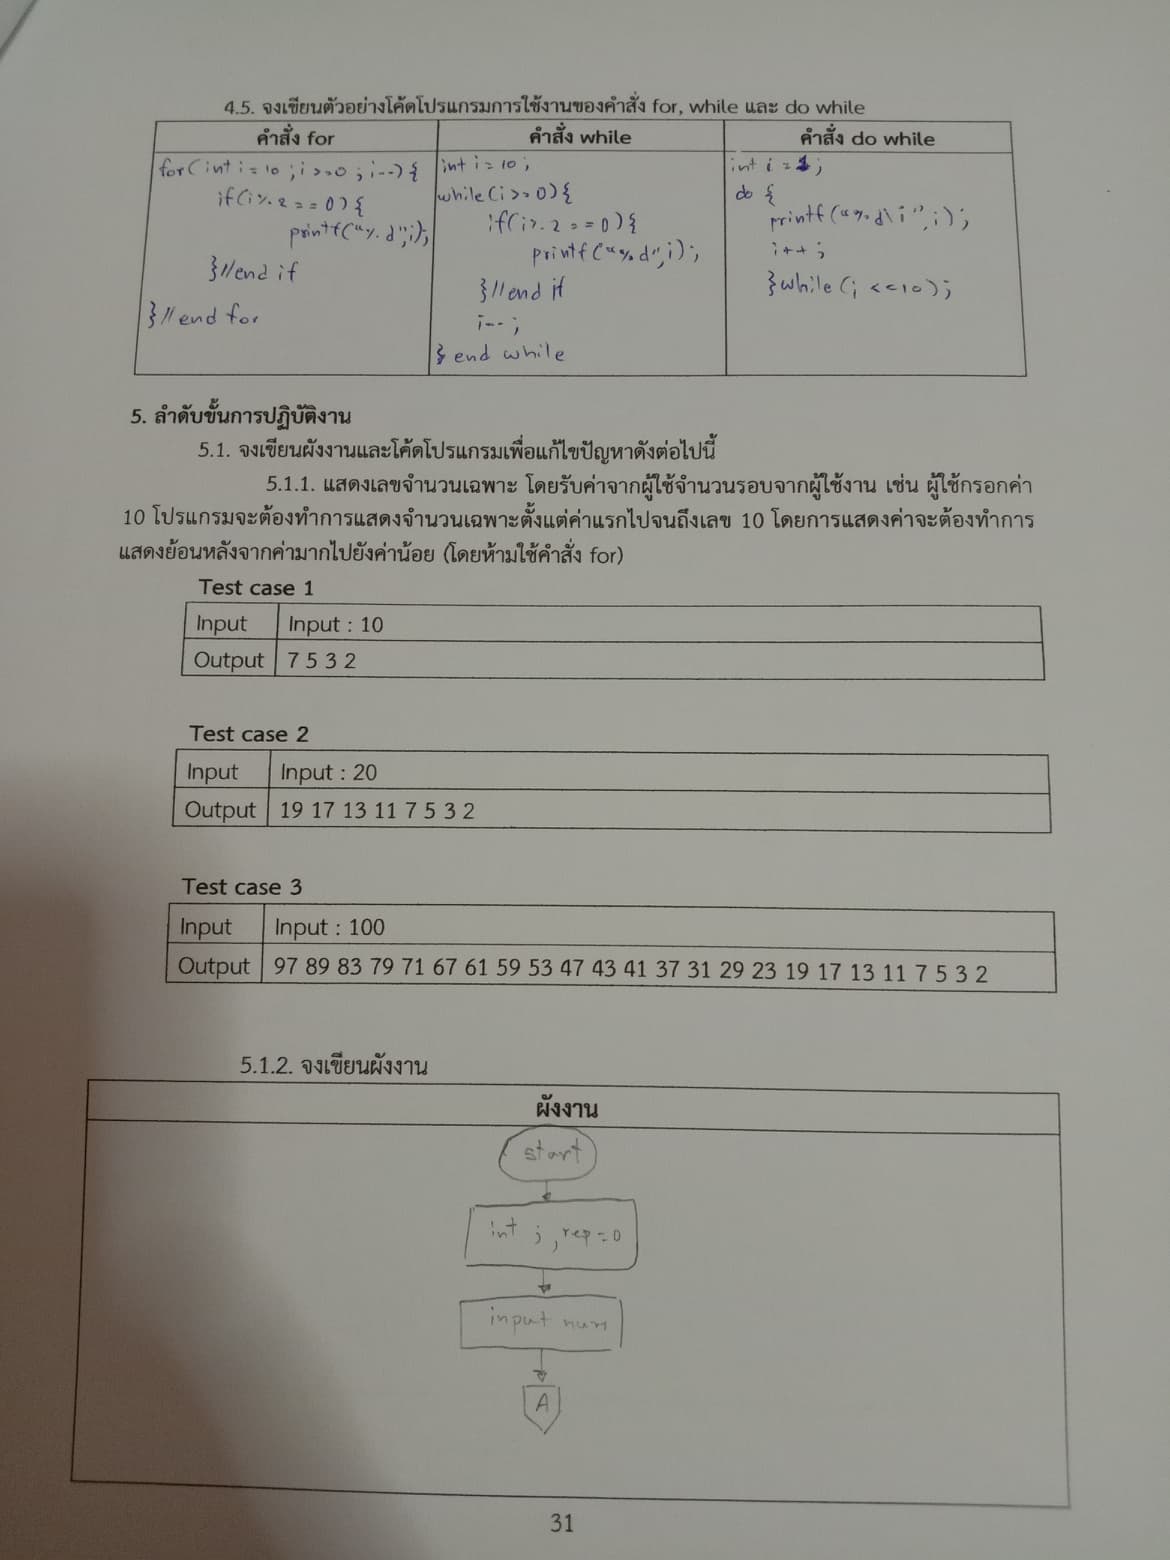 4.5. จงเขียนตัวอย่างโค้ดโปรแกรมการใช้งานของคำสั่ง for, while และ do while
คำสั่ง for
for(int i=10 ;i>=0 ;i--){
if(i%2==0){
printf("%d",i);
}//end if
}//end for
คำสั่ง while
int i=10;
while(i>=0){
if(i%2==0){
printf("%d",i);
}//end if
i--;
} end while
คำสั่ง do while
int i=1;
do {
printf("%d\i",i);
i++;
}while(i<=10);
5. ลำดับขั้นการปฏิบัติงาน
5.1. จงเขียนผังงานและโค้ดโปรแกรมเพื่อแก้ไขปัญหาดังต่อไปนี้
5.1.1. แสดงเลขจำนวนเฉพาะ โดยรับค่าจากผู้ใช้จำนวนรอบจากผู้ใช้งาน เช่น ผู้ใช้กรอกค่า
10 โปรแกรมจะต้องทำการแสดงจำนวนเฉพาะตั้งแต่ค่าแรกไปจนถึงเลข 10 โดยการแสดงค่าจะต้องทำการ
แสดงย้อนหลังจากค่ามากไปยังค่าน้อย (โดยห้ามใช้คำสั่ง for)
Test case 1
Input Input : 10
Output 7 5 3 2
Test case 2
Input Input : 20
Output 19 17 13 11 7 5 3 2
Test case 3
Input Input : 100
Output 97 89 83 79 71 67 61 59 53 47 43 41 37 31 29 23 19 17 13 11 7 5 3 2
5.1.2. จงเขียนผังงาน
ผังงาน
start
int j,rep=0
input num
A
31